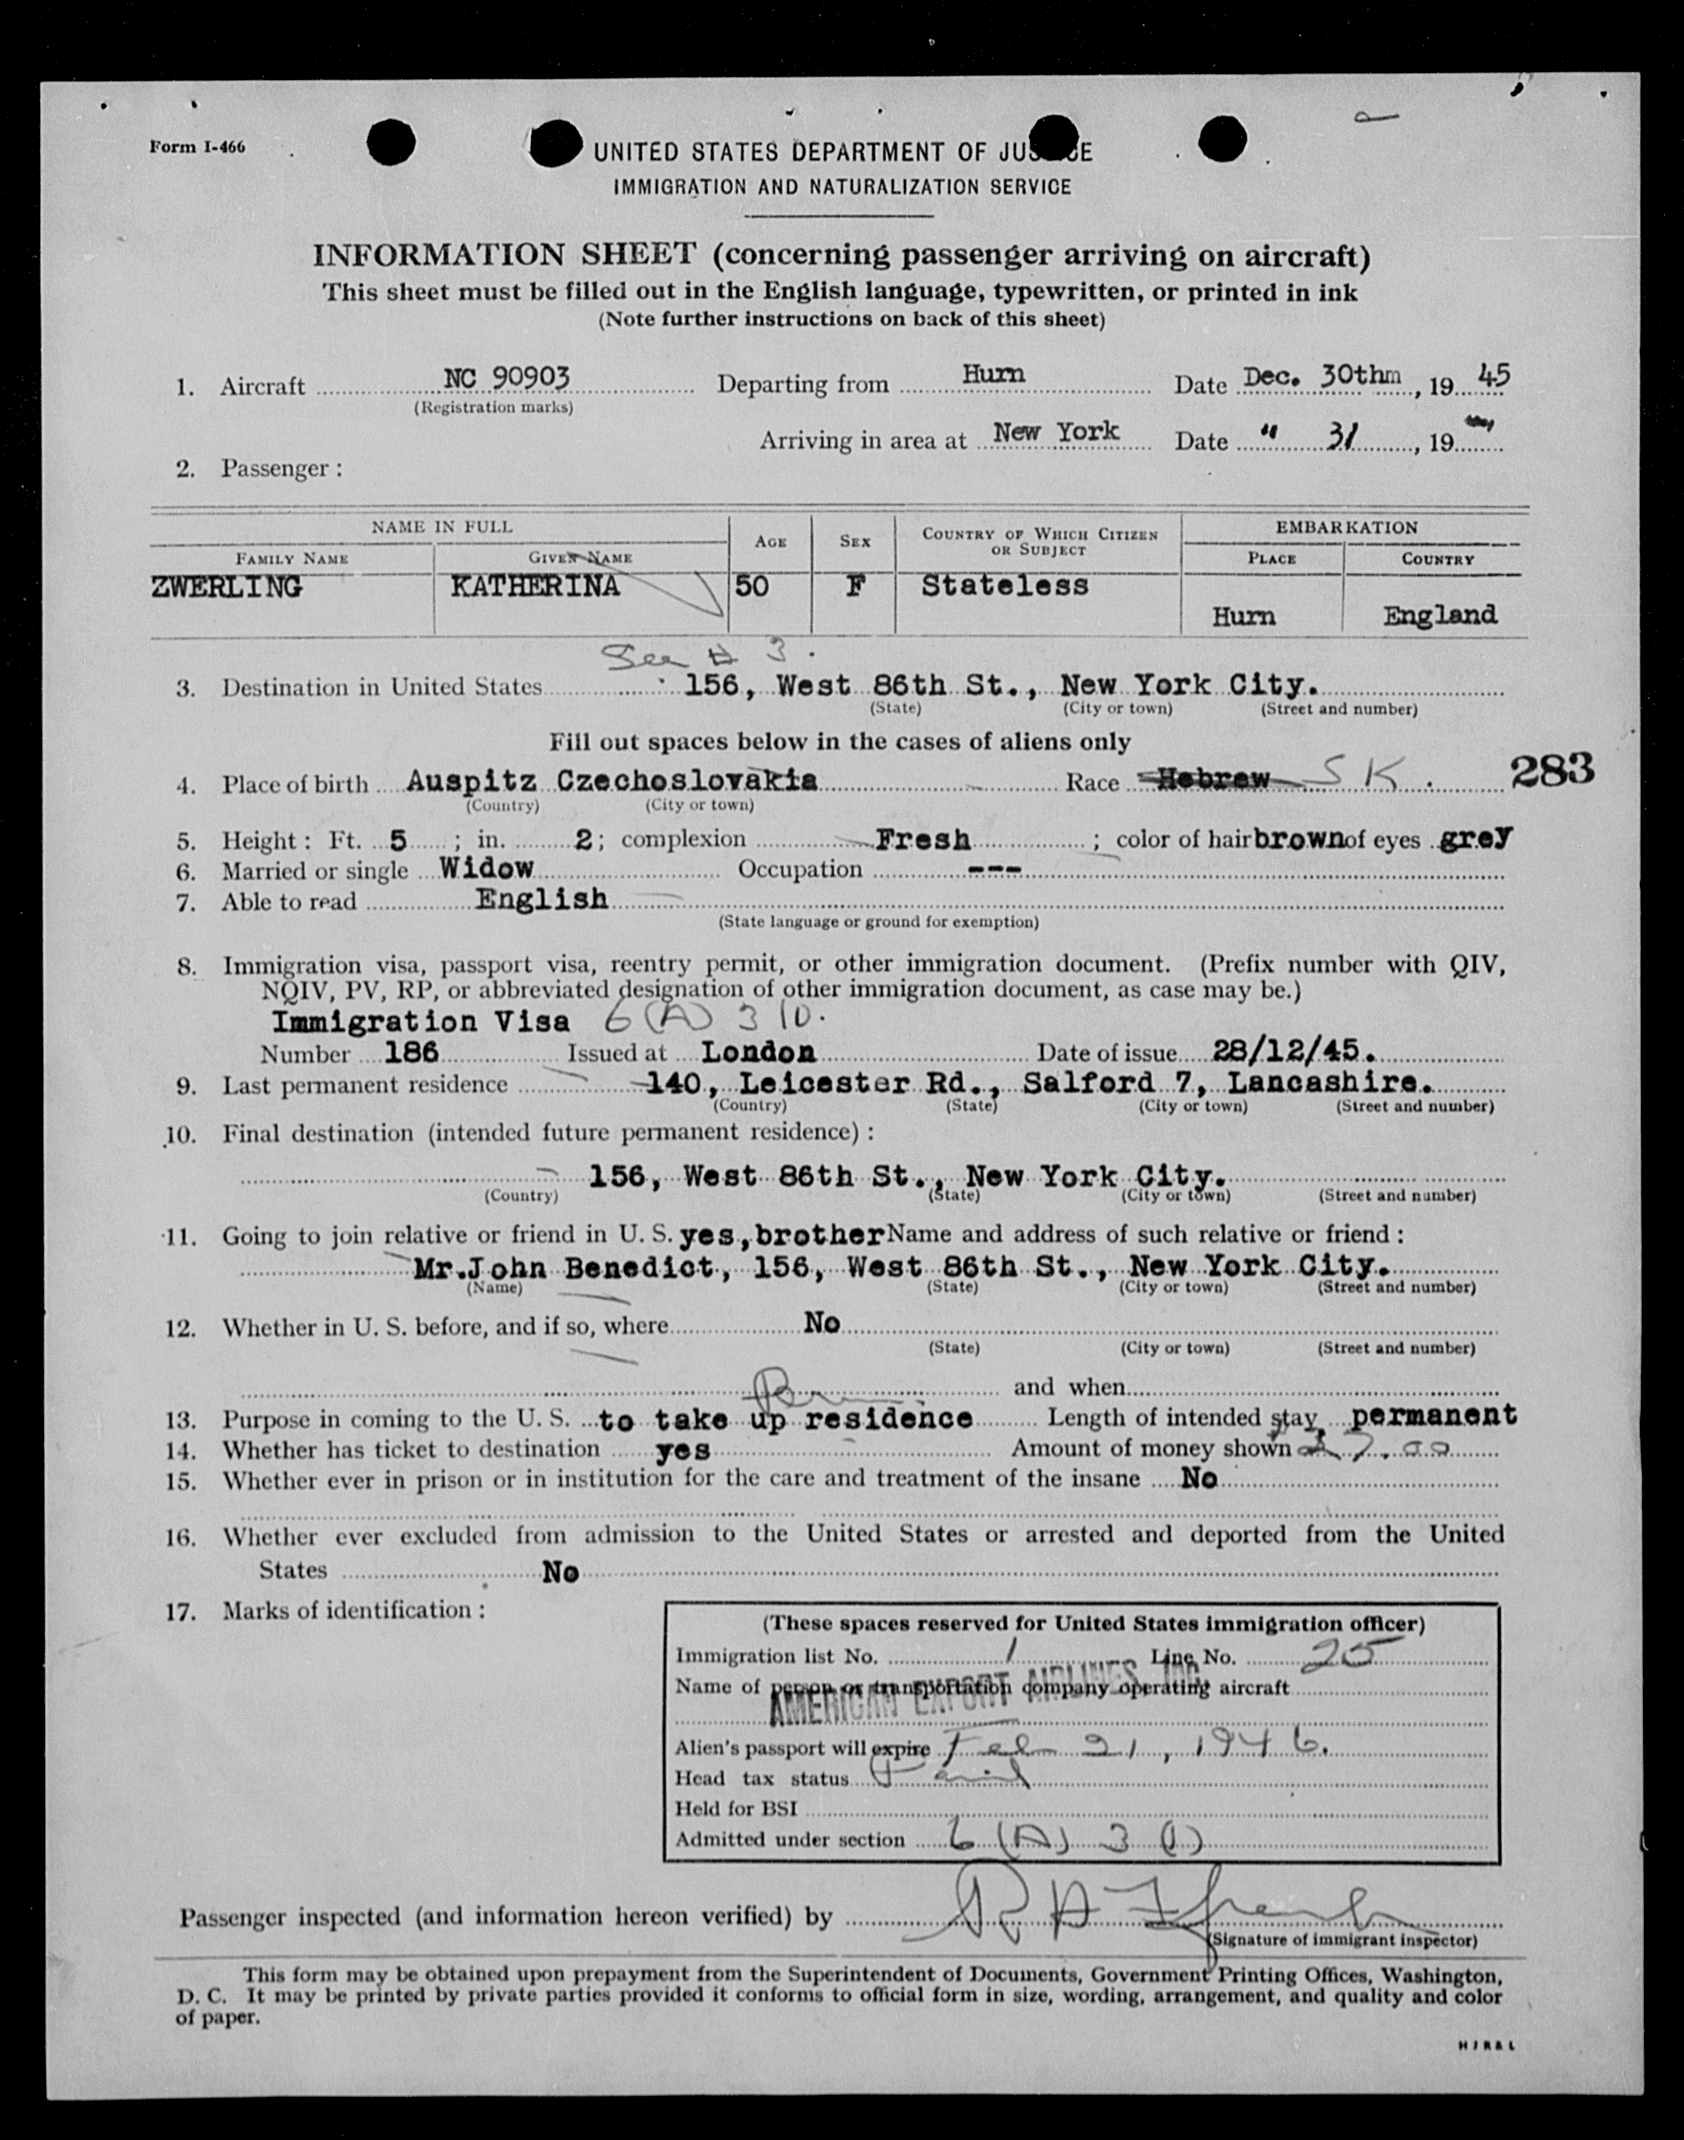 Form I-466
UNITED STATES DEPARTMENT OF JUSTICE
IMMIGRATION AND NATURALIZATION SERVICE
INFORMATION SHEET (concerning passenger arriving on aircraft)
This sheet must be filled out in the English language, typewritten, or printed in ink
(Note further instructions on back of this sheet)
1. Aircraft NC 90903 Departing from Hurn Date Dec. 30thm, 19 45
(Registration marks)
Arriving in area at New York Date " 31, 19
2. Passenger:
NAME IN FULL EMBARKATION
FAMILY NAME GIVEN NAME AGE SEX COUNTRY OF WHICH CITIZEN OR SUBJECT PLACE COUNTRY
ZWERLING KATHERINA 50 F Stateless
Hurn England
See # 3.
3. Destination in United States 156, West 86th St., New York City.
(State) (City or town) (Street and number)
Fill out spaces below in the cases of aliens only
4. Place of birth Auspitz Czechoslovakia Race Hebrew S K. 283
(Country) (City or town)
5. Height: Ft. 5; in. 2; complexion Fresh; color of hair brown of eyes grey
6. Married or single Widow Occupation ---
7. Able to read English
(State language or ground for exemption)
8. Immigration visa, passport visa, reentry permit, or other immigration document. (Prefix number with QIV,
NQIV, PV, RP, or abbreviated designation of other immigration document, as case may be.)
Immigration Visa 6 (A) 3 10.
Number 186 Issued at London Date of issue 28/12/45.
9. Last permanent residence 140, Leicester Rd., Salford 7, Lancashire.
(Country) (State) (City or town) (Street and number)
10. Final destination (intended future permanent residence):
156, West 86th St., New York City.
(Country) (State) (City or town) (Street and number)
11. Going to join relative or friend in U. S. yes, brother Name and address of such relative or friend:
Mr.John Benedict, 156, West 86th St., New York City.
(Name) (State) (City or town) (Street and number)
12. Whether in U. S. before, and if so, where No
(State) (City or town) (Street and number)
and when
13. Purpose in coming to the U. S. to take up residence Length of intended stay permanent
14. Whether has ticket to destination yes Amount of money shown
15. Whether ever in prison or in institution for the care and treatment of the insane No
16. Whether ever excluded from admission to the United States or arrested and deported from the United
States No
17. Marks of identification:
(These spaces reserved for United States immigration officer)
Immigration list No. 1 Line No. 25
Name of person or transportation company operating aircraft
AMERICAN EXPORT AIRLINES, INC.
Alien's passport will expire Feb 21, 1946.
Head tax status Paid
Held for BSI
Admitted under section 6 (A) 3 (1)
Passenger inspected (and information hereon verified) by
(Signature of immigrant inspector)
This form may be obtained upon prepayment from the Superintendent of Documents, Government Printing Offices, Washington,
D. C. It may be printed by private parties provided it conforms to official form in size, wording, arrangement, and quality and color
of paper.